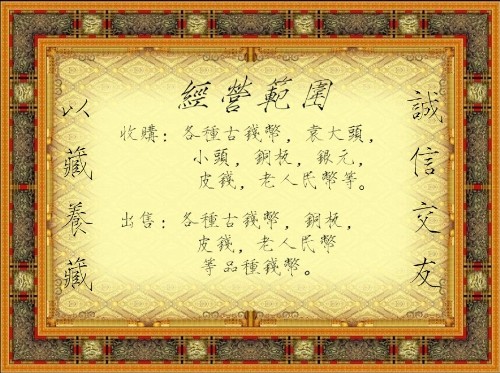 經營範圍
收購：各種古錢幣，袁大頭，
小頭，銅板，銀元，
皮錢，老人民幣等。
出售：各種古錢幣，銅板，
皮錢，老人民幣
等品種錢幣。
誠信交友
以藏養藏